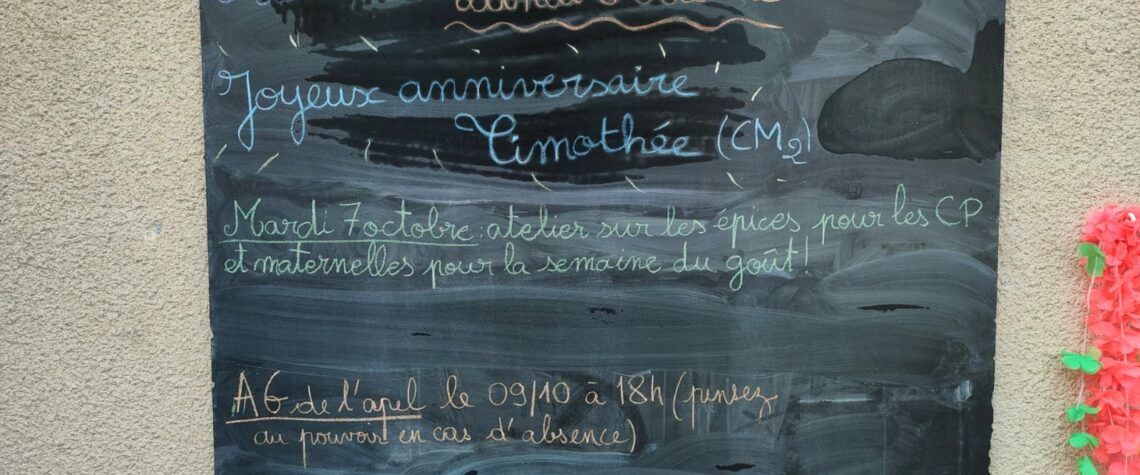 Joyeux anniversaire
Timothée (CM2)
Mardi 7 octobre : atelier sur les épices pour les CP
et maternelles pour la semaine du goût !
AG de l'apel le 09/10 à 18h (pensez
au pouvoir en cas d'absence)